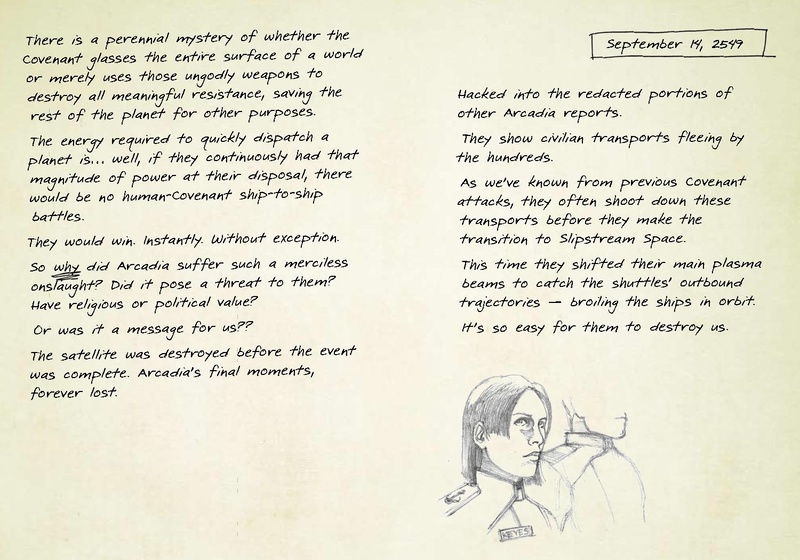 There is a perennial mystery of whether the
Covenant glasses the entire surface of a world
or merely uses those ungodly weapons to
destroy all meaningful resistance, saving the
rest of the planet for other purposes.
The energy required to quickly dispatch a
planet is... well, if they continuously had that
magnitude of power at their disposal, there
would be no human-Covenant ship-to-ship
battles.
They would win. Instantly. Without exception.
So why did Arcadia suffer such a merciless
onslaught? Did it pose a threat to them?
Have religious or political value?
Or was it a message for us??
The satellite was destroyed before the event
was complete. Arcadia's final moments,
forever lost.
September 14, 2549
Hacked into the redacted portions of
other Arcadia reports.
They show civilian transports fleeing by
the hundreds.
As we've known from previous Covenant
attacks, they often shoot down these
transports before they make the
transition to Slipstream Space.
This time they shifted their main plasma
beams to catch the shuttles' outbound
trajectories — broiling the ships in orbit.
It's so easy for them to destroy us.
KEYES